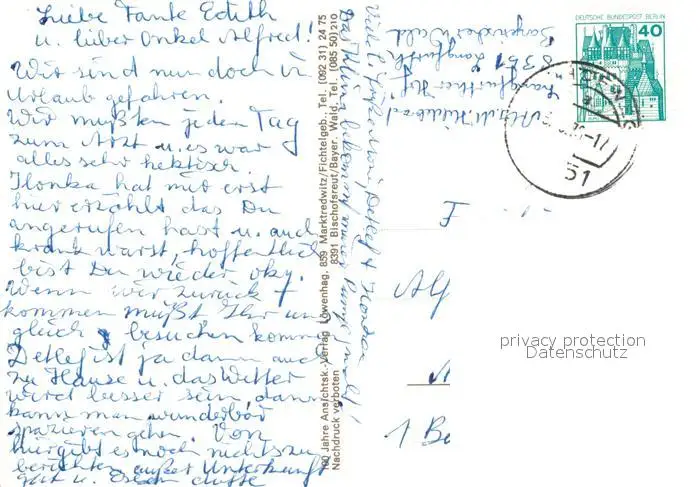 Liebe Tante Edith
u. lieber Onkel Alfred!
Wir sind nun doch in
Urlaub gefahren.
Wir mußten jeden Tag
zum Arzt u. es war
alles sehr hektisch.
Ilonka hat mir erst
hier erzählt das Du
angerufen hast u. auch
krank warst, hoffentlich
bist Du wieder oky.
Wenn wir zurück
kommen müßt Ihr un
gleich besuchen komm
Detlef ist ja dann auch
zu Hause u. das Wetter
wird besser sein, dann
kann man wunderbar
spazieren gehen. Von
hier gibt es noch nichts zu
berichten außer Unterkunft
gut u. Essen dufte
100 Jahre Ansichtsk.-Verlag Löwenhag, 859 Marktredwitz/Fichtelgeb., Tel. (092 31) 24 75
8391 Bischofsreut/Bayer. Wald, Tel. (085 50) 210
Nachdruck verboten
Viele Grüße Detlef + Ilonka
8351 Langfurth
Bayrischer Wald
DEUTSCHE BUNDESPOST BERLIN
40
51
Alf
1 Be
privacy protection
Datenschutz